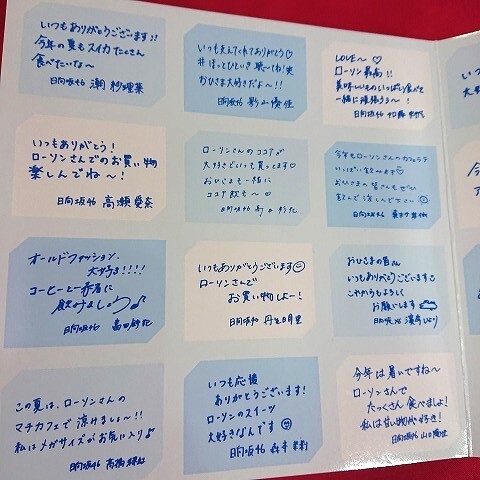 いつもありがとうございます!!
今年の夏もスイカたくさん
食べたいな〜
日向坂46 潮 紗理菜
いつも支えてくれてありがとう♡
#ほっとひといき 聴いてね!
おひさま大好きだよ〜!!
日向坂46 影山優佳
LOVE〜♡
ローソン最高!!
美味しいものいっぱい食べて
一緒に頑張ろう〜!
日向坂46
いつもありがとう!
ローソンさんでのお買い物
楽しんでね〜!
日向坂46 高瀬愛奈
ローソンさんのココアが
大好きでいつも買ってます♡
おひさまも一緒に
ココア飲も〜♡
日向坂46
今年もローソンさんのカフェラテ
いっぱい飲みます♡
おひさまの皆さんもぜひ
飲んで涼んで下さい
日向坂46 東村芽依
オールドファッション、
大好き!!!!
コーヒーと一緒に
飲みましょう♪
日向坂46
いつもありがとうございます
ローソンさんで
お買い物しよー!
日向坂46 丹生明里
おひさまの皆さん
いつもありがとうございます
これからもよろしく
お願いします
日向坂46 濱岸ひより
この夏は、ローソンさんの
マチカフェで涼けましょ〜!!
私はメガサイズがお気に入り♪
日向坂46
いつも応援
ありがとうございます!
ローソンのスイーツ
大好きなんです
日向坂46 森本茉莉
今年は暑いですね〜
ローソンさんで
たっくさん食べましょ!
私は甘い物が好き!
日向坂46 山口陽世